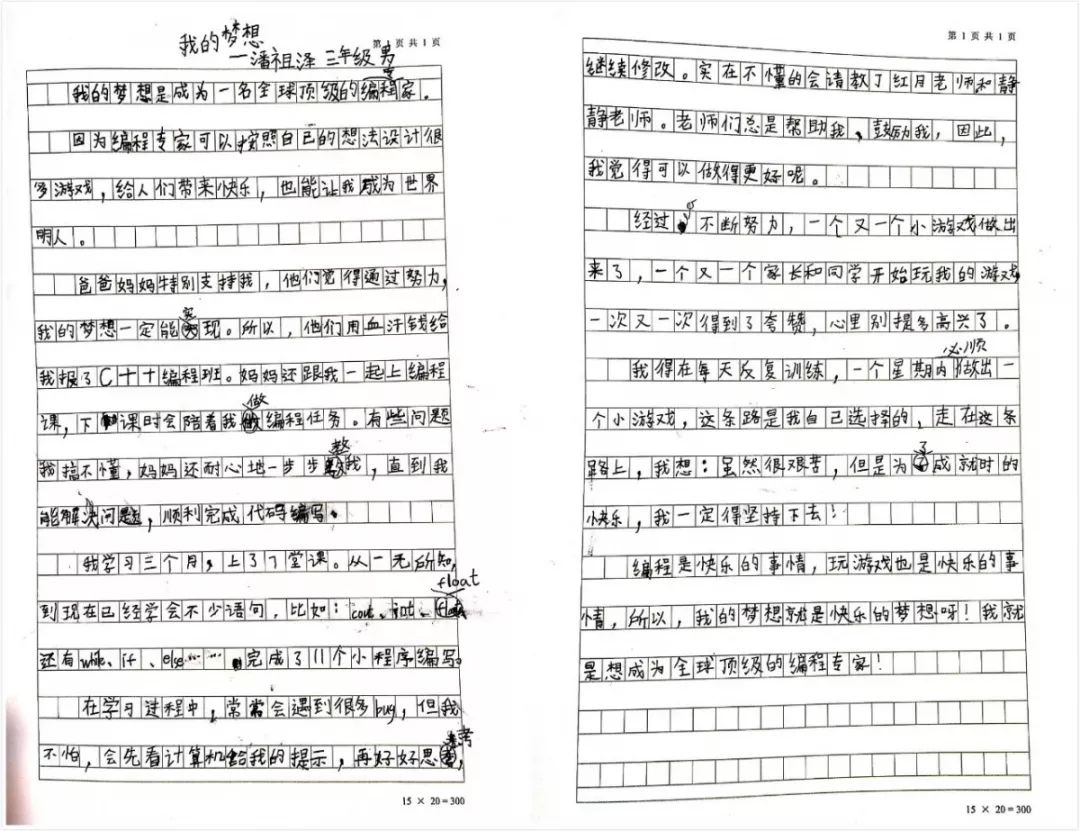 我的梦想
第1页共1页
—潘祖泽 三年级 男
我的梦想是成为一名全球顶级的编程专家。
因为编程专家可以按照自己的想法设计很
多游戏，给人们带来快乐，也能让我成为世界
明人！。
爸爸妈妈特别支持我，他们觉得通过努力，
我的梦想一定能实现。所以，他们用血汗钱给
我报了C++编程班。妈妈还跟我一起上编程
课，下课时会陪着我做编程任务。有些问题
我搞不懂，妈妈还耐心地一步步教我，直到我
能解决问题，顺利完成代码编写。
我学习三个月，上了7堂课。从一无所知，
到现在已经学会不少语句，比如：cout、int、float
还有while、if、else……完成了11个小程序编写。
在学习过程中，常常会遇到很多bug，但我
不怕，会先看计算机给我的提示，再好好思考，
15 × 20=300
第1页共1页
继续修改。实在不懂的会请教丁红月老师和静
静老师。老师们总是帮助我、鼓励我，因此，
我觉得可以做得更好呢。
经过不断努力，一个又一个小游戏做出
来了，一个又一个家长和同学开始玩我的游戏，
一次又一次得到了夸赞，心里别提多高兴了。
我得在每天反复训练，一个星期内必须做出一
个小游戏，这条路是我自己选择的，走在这条
路上，我想：虽然很艰苦，但是为了成就时的
快乐，我一定得坚持下去！
编程是快乐的事情，玩游戏也是快乐的事
情，所以，我的梦想就是快乐的梦想呀！我就
是想成为全球顶级的编程专家！
15 × 20=300